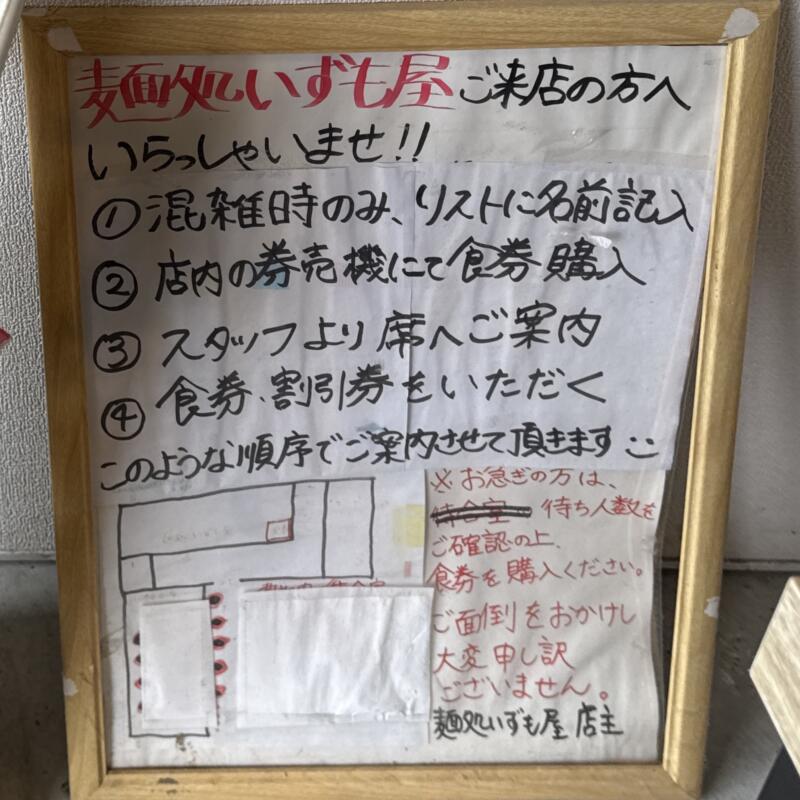 麺処いずも屋ご来店の方へ
いらっしゃいませ!!
①混雑時のみ、リストに名前記入
②店内の券売機にて食券購入
③スタッフより席へご案内
④食券、割引券をいただく
このような順序でご案内させて頂きます
※お急ぎの方は、
待ち人数を
ご確認の上、
食券を購入ください。
ご面倒をおかけし
大変申し訳
ございません。
麺処いずも屋 店主